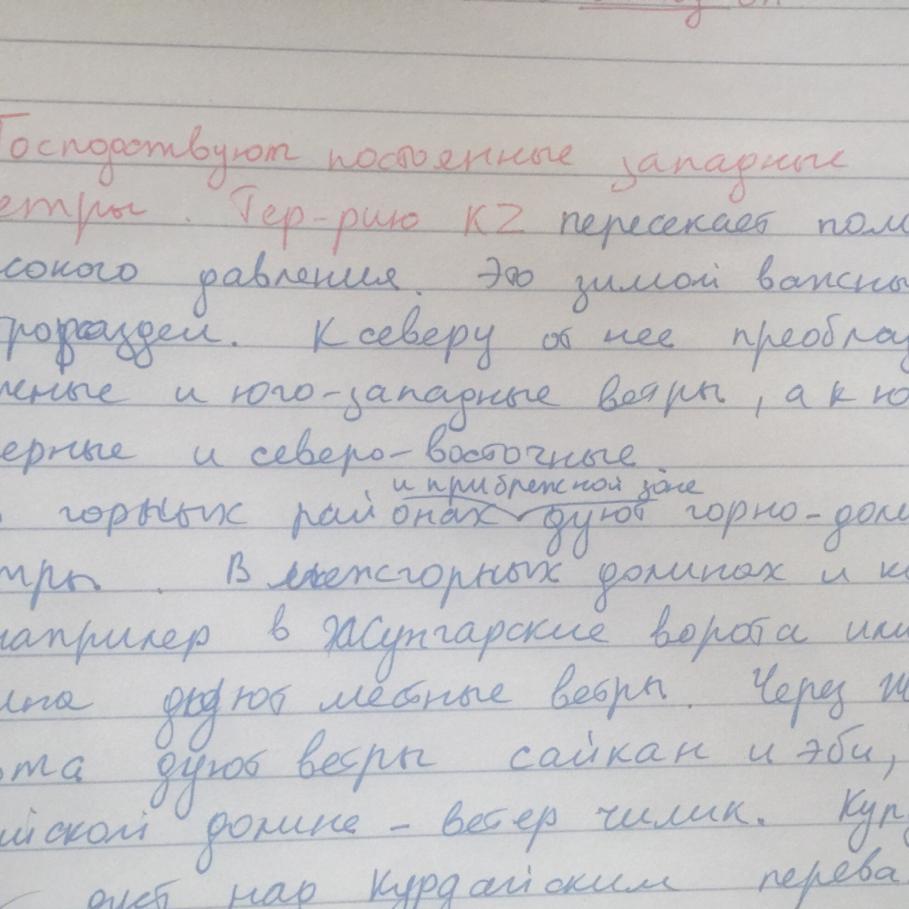 Господствуют постоянные западные
етры. Тер-рию KZ пересекает поло
сокого давления. Это зимой важны
прораздел. К северу от нее преоблад
жные и юго-западные ветры, а к ю
ерные и северо-восточные
и прибрежной зоне
горных районах дуют горно-доли
тры. В межгорных долинах и к
например в Жунгарские ворота или
ина дуют местные ветры. Через Ж
ота дуют ветры сайкан и эби,
йской долине - ветер чилик. Кур
дует над Курдайским перева